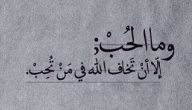 وما الحُب;
إلّا أنْ تَخاف الله في مَنْ تُحِبْ.